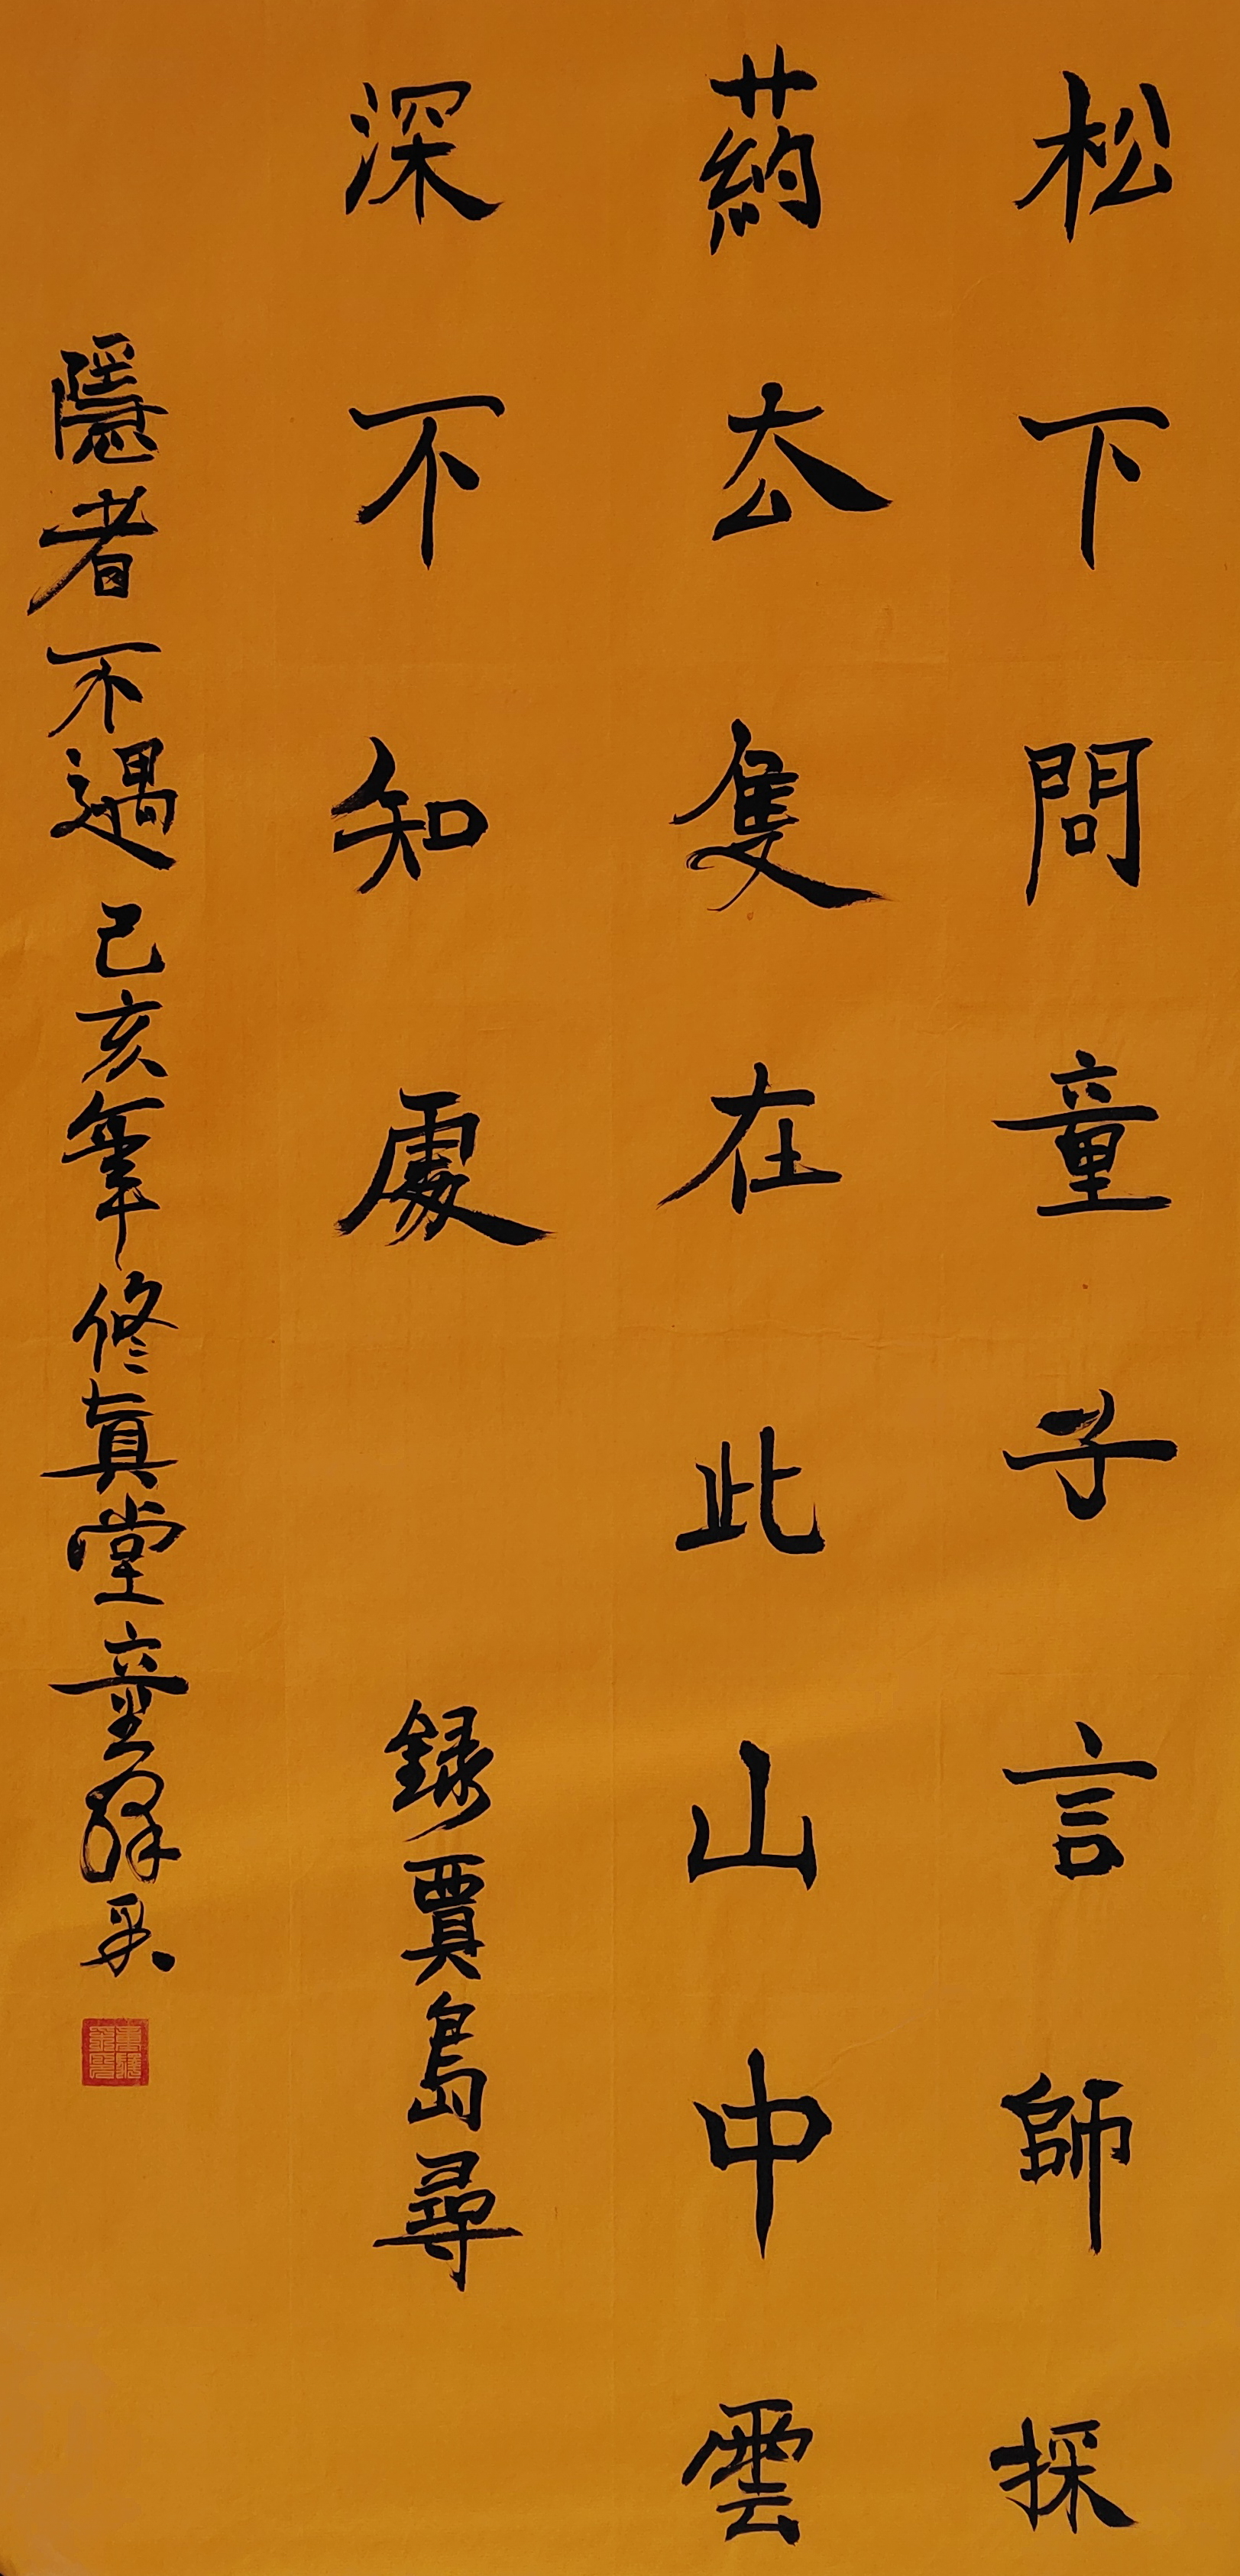 松下問童子言師採
葯厺隻在此山中雲
深不知處 録賈島尋
隱者不遇 己亥年修真堂童